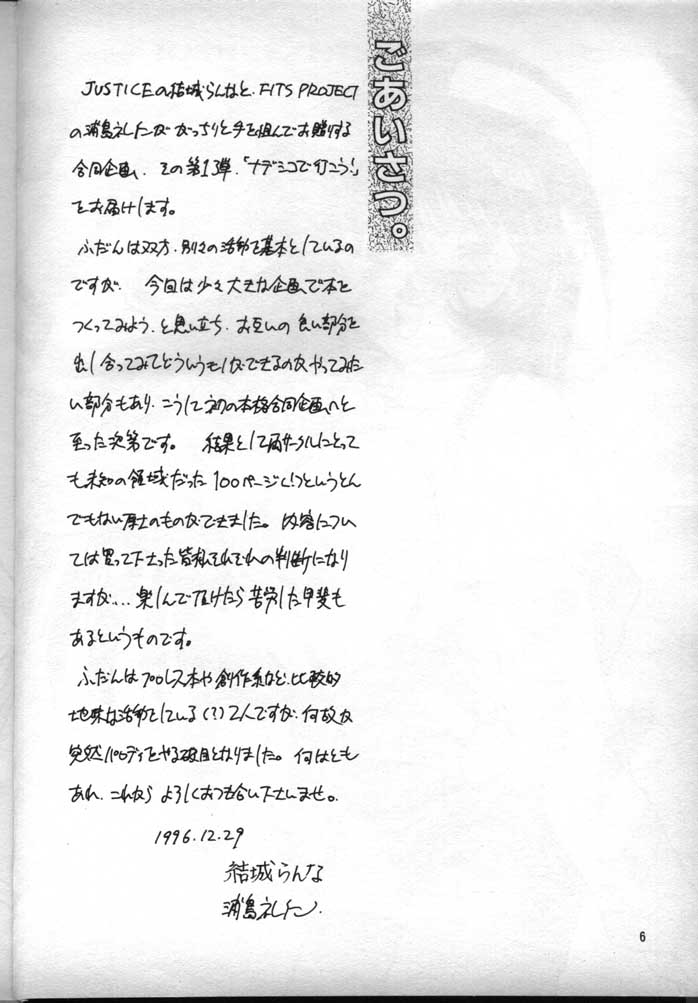 ごあいさつ。
JUSTICEの結城らんなと、FITS PROJECT
の浦島礼仁がガッちりと手を組んでお贈りする
合同企画、その第13弾、「ナデシコで行こう!」
をお届けします。
ふだんは双方、別々の活動を基本としているの
ですが、今回は少々大きな企画で本を
つくってみよう、と思い立ち、お互いの良い部分を
出し合ってみてどういうもんができるのかやってみた
い部分もあり、こうして初の本格合同企画へと
至った次第です。 結果として両サークルにとって
も未知の領域だった100ページ(!)というとん
でもない厚さのものができました。内容につい
ては買って下さった皆様それぞれの判断になり
ますが... 楽しんで頂けたら苦労した甲斐も
あるというものです。
ふだんはプロレス本や創作系など、比較的
地味な活動をしている(?)2人ですが、何故か
突然パロディをやる破目となりました。何はとも
あれ、これから よろしくおつき合い下さいませ。
1996.12.29
結城らんな
浦島
6